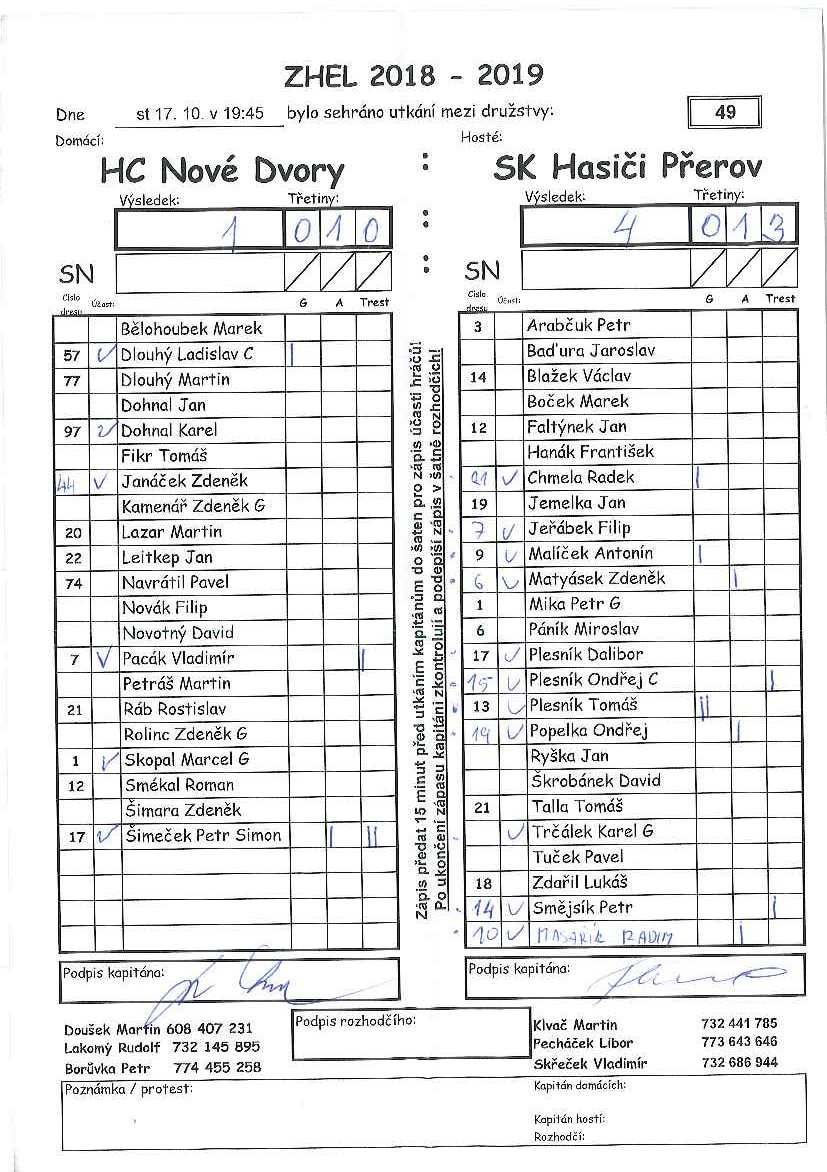 ZHEL 2018 - 2019
Dne st 17. 10. v 19:45 bylo sehráno utkání mezi družstvy: 49
Domácí: Hosté:
HC Nové Dvory : SK Hasiči Přerov
Výsledek: Třetiny: Výsledek: Třetiny:
1 0 1 0 : 4 0 1 3
SN : SN
Číslo dresu Účast: G A Trest
Bělohoubek Marek
57 ✓ Dlouhý Ladislav C |
77 Dlouhý Martin
Dohnal Jan
97 ✓ Dohnal Karel
Fikr Tomáš
44 ✓ Janáček Zdeněk
Kamenář Zdeněk G
20 Lazar Martin
22 Leitkep Jan
74 Navrátil Pavel
Novák Filip
Novotný David
7 ✓ Pacák Vladimír |
Petráš Martin
21 Ráb Rostislav
Rolinc Zdeněk G
1 ✓ Skopal Marcel G
12 Smékal Roman
Šimara Zdeněk
17 ✓ Šimeček Petr Simon | ||
Zápis předat 15 minut před utkáním kapitánům do šaten pro zápis účasti hráčů!
Po ukončení zápasu kapitáni zkontrolují a podepíší zápis v šatně rozhodčích!
Číslo dresu Účast: G A Trest
3 Arabčuk Petr
Baďura Jaroslav
14 Blažek Václav
Boček Marek
12 Faltýnek Jan
Hanák František
21 ✓ Chmela Radek |
19 Jemelka Jan
7 ✓ Jeřábek Filip
9 ✓ Malíček Antonín |
6 ✓ Matyásek Zdeněk |
1 Mika Petr G
6 Páník Miroslav
17 ✓ Plesník Dalibor
15 ✓ Plesník Ondřej C |
13 ✓ Plesník Tomáš ||
19 ✓ Popelka Ondřej |
Ryška Jan
Škrobánek David
21 Talla Tomáš
✓ Trčálek Karel G
Tuček Pavel
18 Zdařil Lukáš
14 ✓ Smějsík Petr |
10 ✓ MASAŘÍK RADIM |
Podpis kapitána: Podpis kapitána:
Doušek Martin 608 407 231
Lakomý Rudolf 732 145 895
Borůvka Petr 774 455 258
Podpis rozhodčího:
Klvač Martin 732 441 785
Pecháček Libor 773 643 646
Skřeček Vladimír 732 686 944
Poznámka / protest:
Kapitán domácích:
Kapitán hostí:
Rozhodčí: